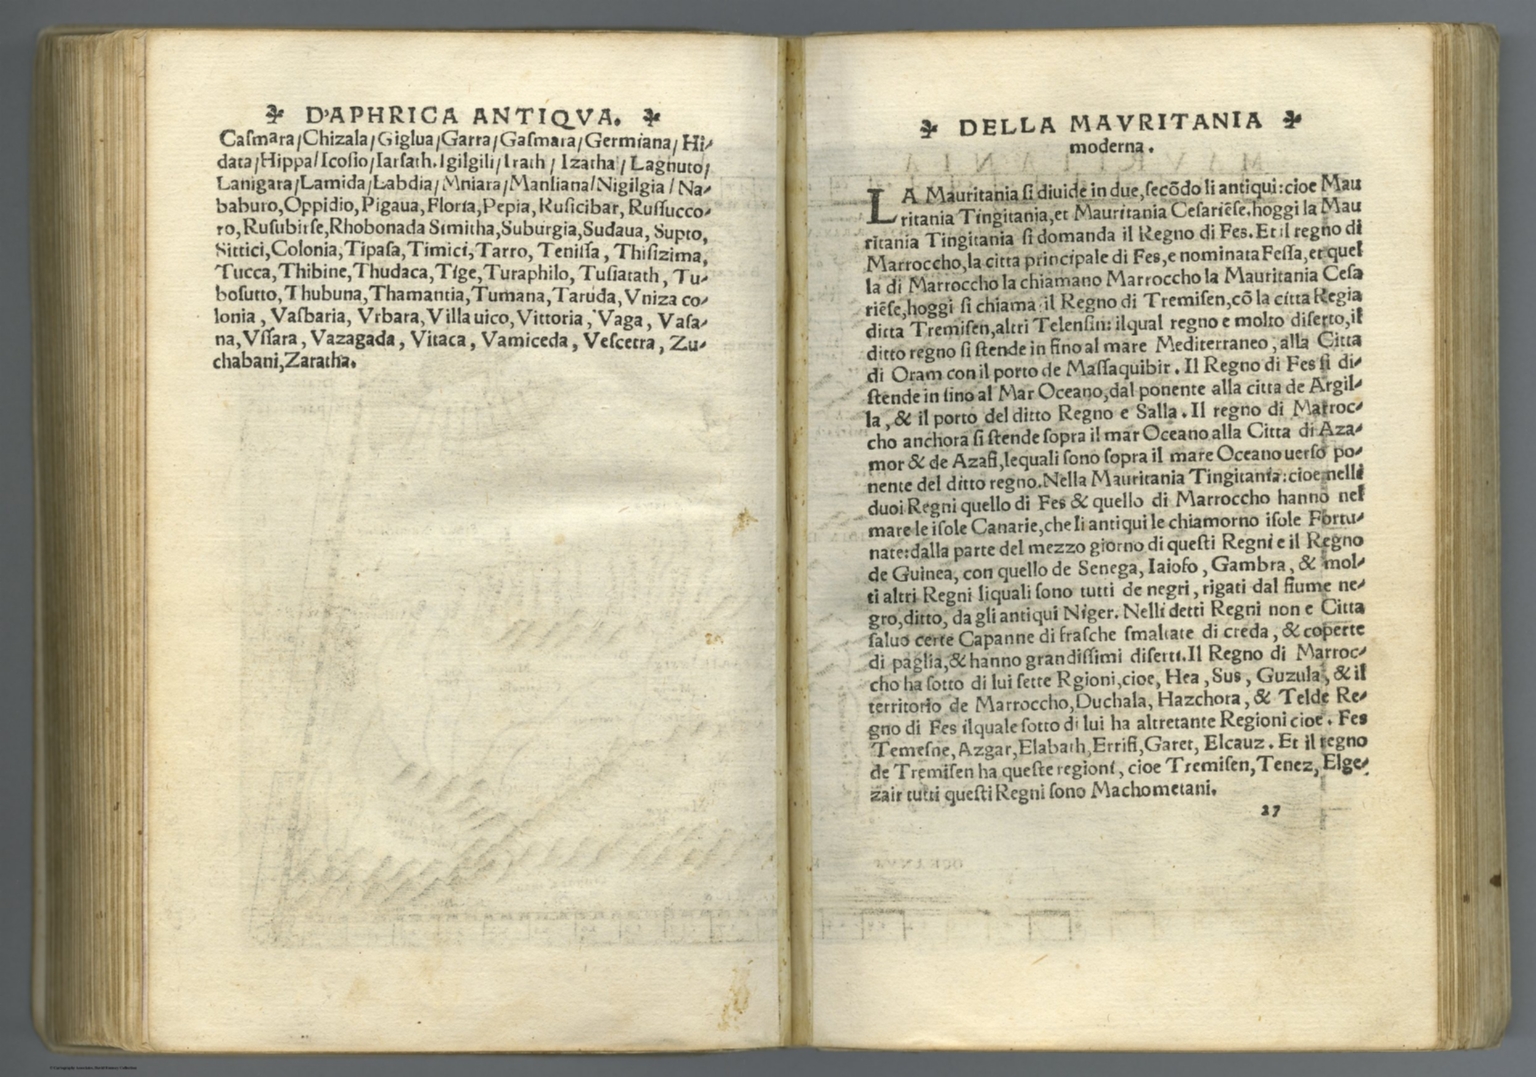 D'APHRICA ANTIQVA.
Caſmara/Chizala/Giglua/Garra/Gaſmara/Germiana/Hi-
data/Hippa/Icoſio/Iarſath.Igilgili/Irath/Izatha/Lagnuto/
Lanigara/Lamida/Labdia/Mniara/Manliana/Nigilgia/Na-
baburo,Oppidio,Pigaua,Floria,Pepia,Ruſicibar,Ruſſucco-
ro,Ruſubirſe,Rhobonada Simitha,Suburgia,Sudaua, Supto,
Sittici,Colonia,Tipaſa,Timici,Tarro,Teniſſa,Thiſizima,
Tucca,Thibine,Thudaca,Tige,Turaphilo,Tuſiatath,Tu-
boſutto,Thubuna,Thamantia,Tumana,Taruda,Vniza co-
lonia, Vaſbaria, Vrbara,Villa uico,Vittoria, Vaga, Vaſa-
na,Vſſara, Vazagada, Vitaca, Vamiceda, Veſcetra, Zu-
chabani,Zaratha.
DELLA MAVRITANIA
moderna.
LA Mauritania ſi diuide in due,ſecōdo li antiqui:cioe Mau
ritania Tingitania,et Mauritania Ceſariēſe.hoggi la Mau
ritania Tingitania ſi domanda il Regno di Fes.Et il regno di
Marroccho,la citta principale di Fes,e nominata Feſſa,et quel
la di Marroccho la chiamano Marroccho la Mauritania Ceſa
riēſe,hoggi ſi chiama il Regno di Tremiſen,cō la citta Regia
ditta Tremiſen,altri Telenſin: ilqual regno e molto diſerto,il
ditto regno ſi ſtende in fino al mare Mediterraneo, alla Citta
di Oram con il porto de Maſſaquibir. Il Regno di Fes ſi di-
ſtende in ſino al Mar Oceano,dal ponente alla citta de Argil-
la, & il porto del ditto Regno e Salla. Il regno di Marroc-
cho anchora ſi ſtende ſopra il mar Oceano alla Citta di Aza-
mor & de Azafi,lequali ſono ſopra il mare Oceano uerſo po-
nente del ditto regno.Nella Mauritania Tingitania:cioe nelli
duoi Regni quello di Fes & quello di Marroccho hanno nel
mare le iſole Canarie,che li antiqui le chiamorno iſole Fortu-
nate:dalla parte del mezzo giorno di queſti Regni e il Regno
de Guinea, con quello de Senega, Iaiofo, Gambra, & mol-
ti altri Regni liquali ſono tutti de negri, rigati dal fiume ne-
gro,ditto, da gli antiqui Niger. Nelli detti Regni non e Citta
ſaluo certe Capanne di fraſche ſmaltate di creda, & coperte
di paglia,& hanno grandiſſimi diſerti.Il Regno di Marroc-
cho ha ſotto di lui ſette Rgioni,cioe, Hea, Sus, Guzula, & il
territorio de Marroccho,Duchala, Hazchora, & Telde Re-
gno di Fes ilquale ſotto di lui ha altretante Regioni cioe. Fes
Temeſne,Azgar,Elabath,Errifi,Garet, Elcauz. Et il regno
de Tremiſen ha queſte regioni, cioe Tremiſen,Tenez, Elge-
zair tutti queſti Regni ſono Machometani.
27